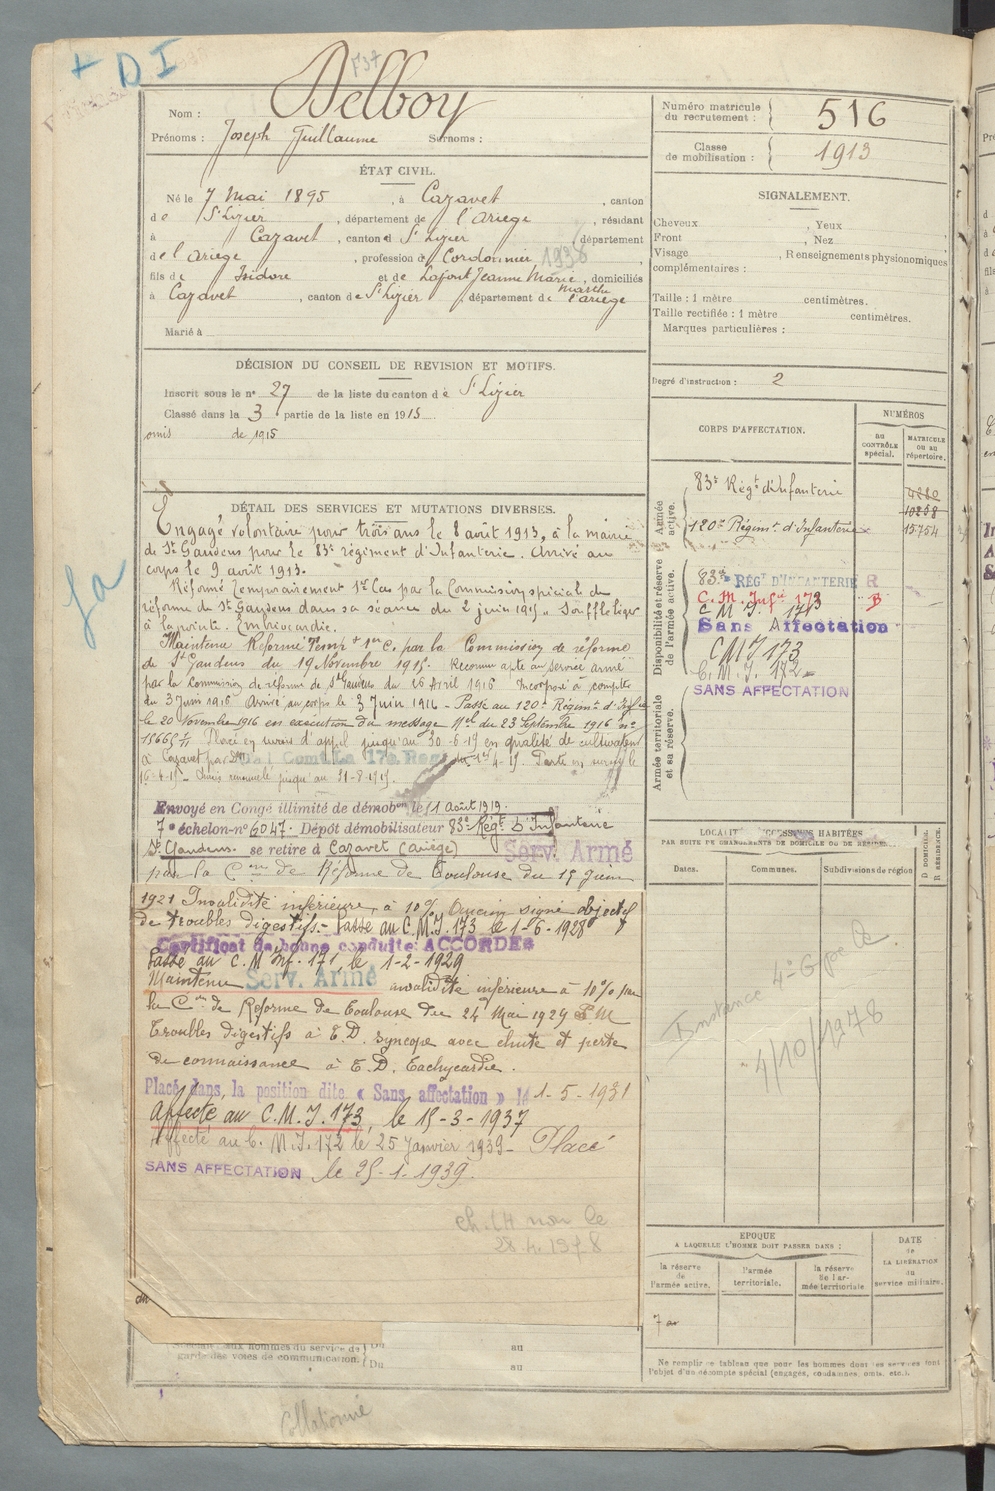 + D I
F37
Nom : Delboy
Prénoms : Joseph Guillaume Surnoms :
ÉTAT CIVIL.
Né le 7 Mai 1895, à Cazavet, canton
de St Lizier, département de l'Ariège, résidant
à Cazavet, canton d St Lizier, département
de l'Ariège, profession de Cordonnier 1938,
fils de Isidore et de Lafont Jeanne Marie, domiciliés
Marthe
à Cazavet, canton de St Lizier, département de l'ariège
Marié à
DÉCISION DU CONSEIL DE REVISION ET MOTIFS.
Inscrit sous le n° 27 de la liste du canton de St Lizier
Classé dans la 3 partie de la liste en 1915
omis de 1915
DÉTAIL DES SERVICES ET MUTATIONS DIVERSES.
Engagé volontaire pour trois ans le 8 août 1913, à la mairie
de St Gaudens pour le 83e régiment d'Infanterie. Arrivé au
corps le 9 août 1913.
Réformé Temporairement 1er Cas par la Commission spéciale de
réforme de St Gaudens dans sa séance du 2 juin 1915. Souffle léger
à la pointe. Embriocardie.
Maintenu Réformé Temp. 1er C. par la Commission de réforme
de St Gaudens du 19 Novembre 1915. Reconnu apte au service armé
par la Commission de réforme de St Gaudens du 26 Avril 1916 Incorporé à compter
du 3 Juin 1916 Arrivé au corps le 3 Juin 1916 - Passé au 120e Régimt d'Inf.
le 20 Novembre 1916 en exécution du message Mel du 23 Septembre 1916 n°
15665 Placé en sursis d'appel jusqu'au 30-6-19 en qualité de cultivateur
à Cazavet par Gal Comt La 17e Reg. 4-19. Parti en sursis le
16-4-19 - Sursis renouvelé jusqu'au 31-8-1919.
Envoyé en Congé illimité de démobon le 11 Août 1919.
7e échelon n° 6047. Dépôt démobilisateur 83e Régt d'Infanterie
St Gaudens. se retire à Cazavet (Ariège) Serv. Armé
par la Con de Réforme de Toulouse du 15 Juin
1921 Invalidité inférieure à 10% Aucun signe objectif
de troubles digestifs. - Passé au C.M.I. 173 le 1-6-1928
Certificat de bonne conduite: ACCORDÉ
Passé au C.M Inf. 171, le 1-2-1929
Maintenu Serv. Armé invalidité inférieure à 10% par
la Con de Réforme de Toulouse du 24 Mai 1929 P.M
Troubles digestifs à E.D. syncope avec chute et perte
de connaissance à E.D. Tachycardie.
Placé dans la position dite « Sans affectation » le 1-5-1931
Affecté au C.M.I. 173, le 15-3-1937
Affecté au C.M.I. 172 le 25 Janvier 1939 - Placé
SANS AFFECTATION le 25-1-1939.
ch. LH non le
28.4.1978
du
Spéciale aux hommes du service de Du au
garde des voies de communication. Du au
Collationné
Numéro matricule du recrutement : 516
Classe de mobilisation : 1913
SIGNALEMENT.
Cheveux , Yeux
Front , Nez
Visage , Renseignements physionomiques
complémentaires :
Taille : 1 mètre centimètres.
Taille rectifiée : 1 mètre centimètres.
Marques particulières :
Degré d'instruction : 2
CORPS D'AFFECTATION.
NUMÉROS
au CONTRÔLE spécial.
MATRICULE ou au répertoire.
Armée active.
83e Régt d'Infanterie 4280
10268
120e Régimt d'Infanterie 15754
Disponibilité et réserve de l'armée active.
83e RÉGt D'INFANTERIE R
C.M. Infie 173 B
C M I 173
Sans Affectation
CMI 173
C.M.I. 172
SANS AFFECTATION
Armée territoriale et sa réserve.
LOCALITÉS SUCCESSIVES HABITÉES
PAR SUITE DE CHANGEMENTS DE DOMICILE OU DE RÉSIDENCE.
Dates. Communes. Subdivisions de région D DOMICILE. R RÉSIDENCE.
Instance 4e Gpe
4/10/1978
EPOQUE
A LAQUELLE L'HOMME DOIT PASSER DANS :
la réserve de l'armée active.
l'armée territoriale.
la réserve de l'armée territoriale
DATE de LA LIBÉRATION du service militaire.
Ne remplir ce tableau que pour les hommes dont les services font
l'objet d'un décompte spécial (engagés, condamnés, omis, etc.).